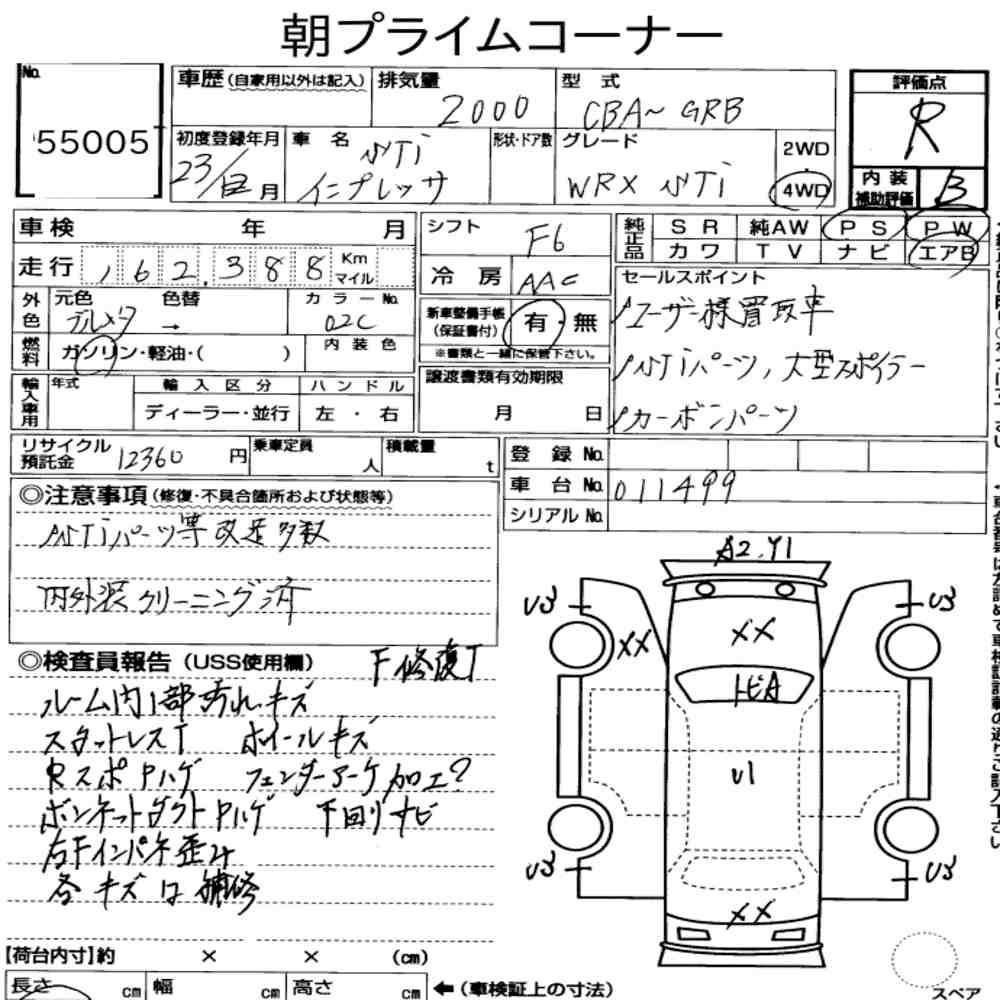 朝プライムコーナー
No.
55005
車歴 (自家用以外は記入)
排気量
2000
型式
CBA~ GRB
評価点
R
初度登録年月
23/12月
車名
STi
インプレッサ
形状・ドア数
グレード
WRX STi
2WD
4WD
内装
補助評価
B
車検 年 月
走行 162,388 Km
マイル
シフト
F6
冷房
AAC
純正品
SR 純AW PS PW
カワ TV ナビ エアB
外色
元色 色替
ブルメタ →
カラーNo.
02C
燃料
ガソリン・軽油・( )
内装色
新車整備手帳
(保証書付)
有・無
※書類と一緒に保管下さい。
セールスポイント
ユーザー様買取車
STiパーツ、大型スポイラー
カーボンパーツ
輸入車用
年式
輸入区分
ハンドル
ディーラー・並行
左・右
譲渡書類有効期限
月 日
リサイクル
預託金
12360円
乗車定員
人
積載量
t
登録No.
車台No. 011499
シリアルNo.
◎注意事項 (修復・不具合箇所および状態等)
STiパーツ等改造多数
内外装クリーニング済
◎検査員報告 (USS使用欄)
F修復T
ルーム内1部汚れキズ
スタットレスT ホイールキズ
RスポPハゲ フェンダーアーチ加工?
ボンネットダクトPハゲ 下回りサビ
右Fインパネ歪み
各キズは補修
A2.Y1
U3
U3
XX
XX
トビA
U1
U3
U3
XX
【荷台内寸】約 × × (cm)
長さ cm 幅 cm 高さ cm ←(車検証上の寸法)
スペア